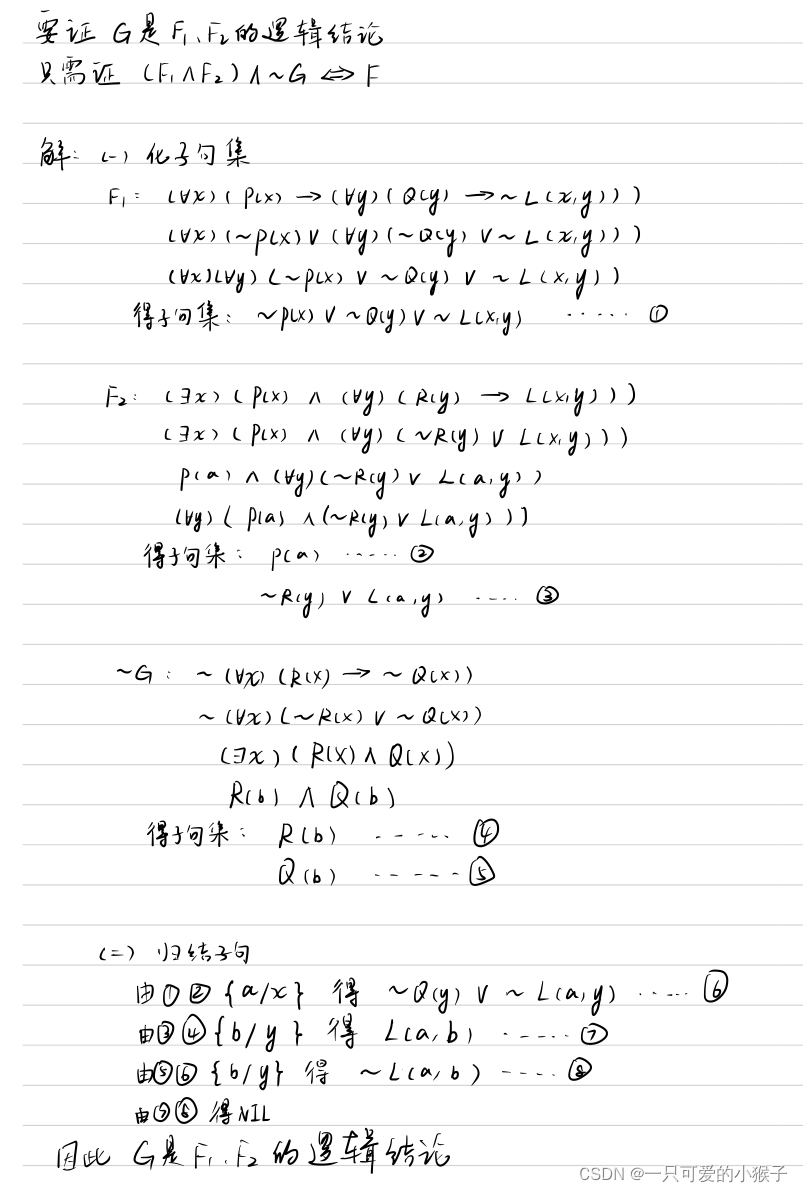 要证 G是 F₁、F₂ 的逻辑结论
只需证 (F₁∧F₂)∧~G ⇔ F
解: (一) 化子句集
F₁: (∀x)(P(x)→(∀y)(Q(y)→~L(x,y)))
(∀x)(~P(x)∨(∀y)(~Q(y)∨~L(x,y)))
(∀x)(∀y)(~P(x)∨~Q(y)∨~L(x,y))
得子句集: ~P(x)∨~Q(y)∨~L(x,y) ······ ①
F₂: (∃x)(P(x)∧(∀y)(R(y)→L(x,y)))
(∃x)(P(x)∧(∀y)(~R(y)∨L(x,y)))
P(a)∧(∀y)(~R(y)∨L(a,y))
(∀y)(P(a)∧(~R(y)∨L(a,y)))
得子句集: P(a) ······ ②
~R(y)∨L(a,y) ····· ③
~G: ~(∀x)(R(x)→~Q(x))
~(∀x)(~R(x)∨~Q(x))
(∃x)(R(x)∧Q(x))
R(b)∧Q(b)
得子句集: R(b) ······ ④
Q(b) ······ ⑤
(二) 归结子句
由①②{a/x} 得 ~Q(y)∨~L(a,y) ····· ⑥
由③④{b/y} 得 L(a,b) ······ ⑦
由⑤⑥{b/y} 得 ~L(a,b) ····· ⑧
由⑦⑧ 得NIL
因此 G是F₁、F₂ 的逻辑结论
CSDN @一只可爱的小猴子